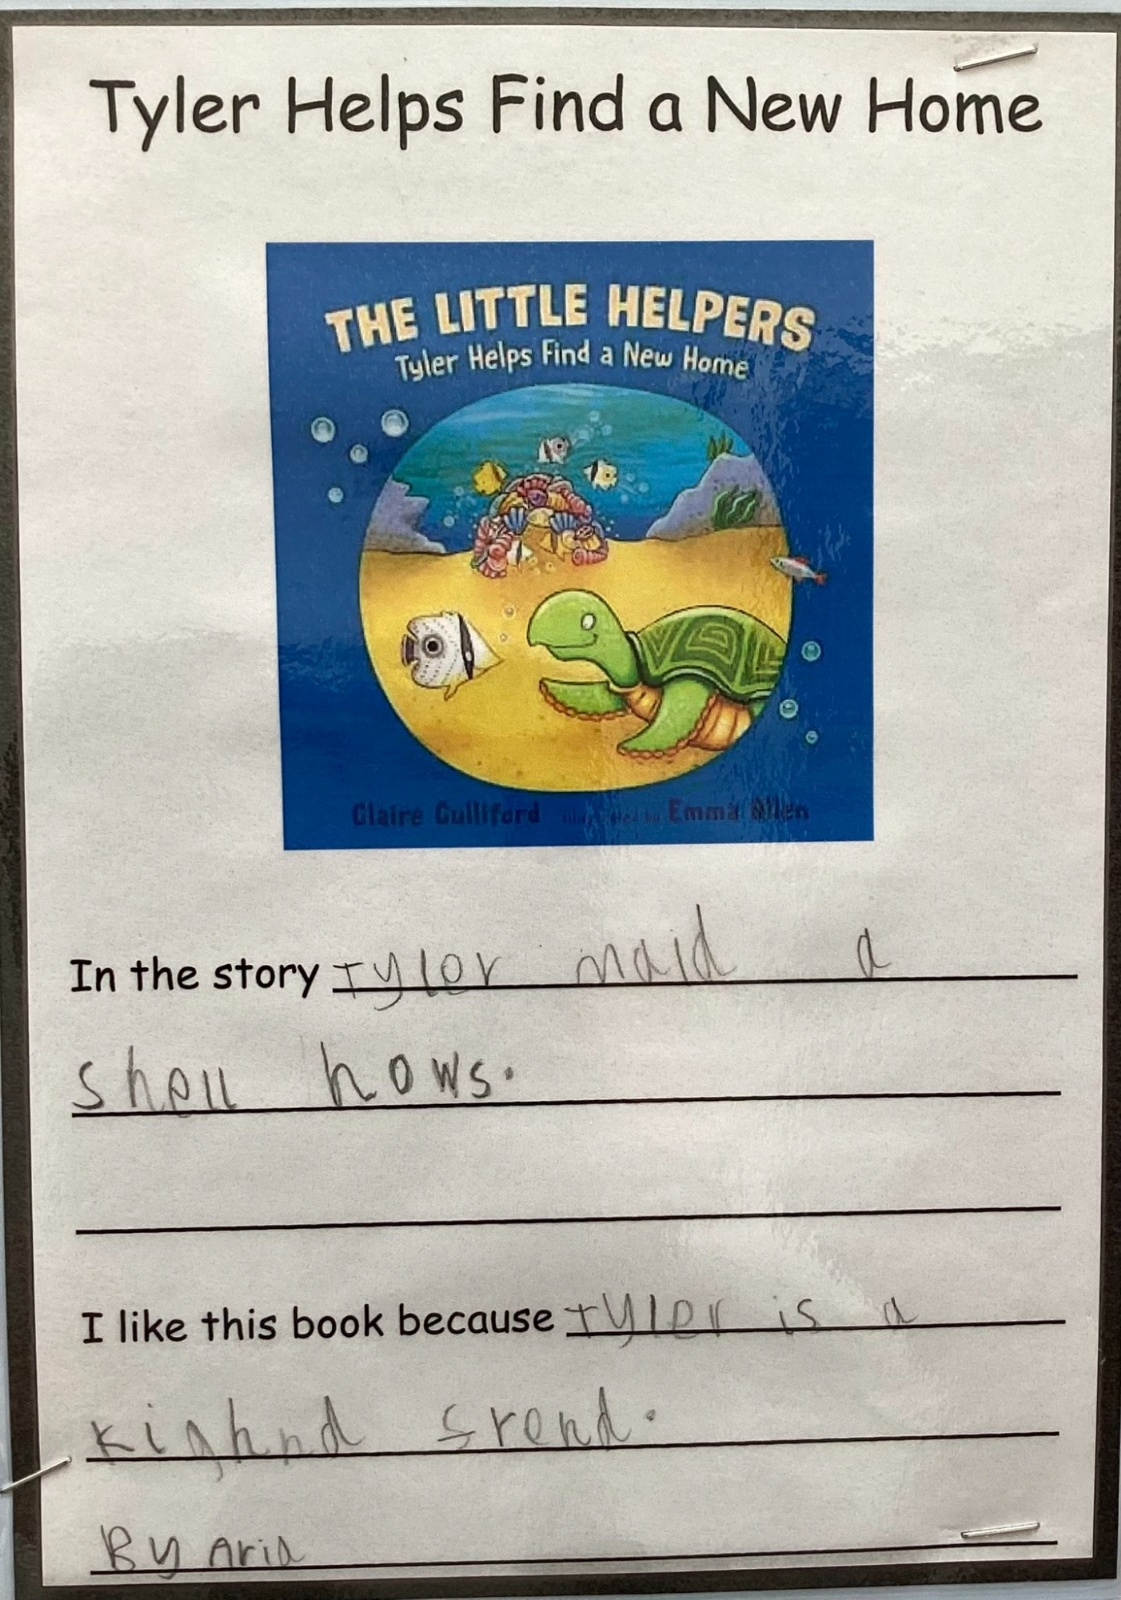 Tyler Helps Find a New Home
THE LITTLE HELPERS
Tyler Helps Find a New Home
Claire Culliford illustrated by Emma Allen
In the story Tyler maid a
shell hows.
I like this book because Tyler is a
kighnd frend.
By Aria